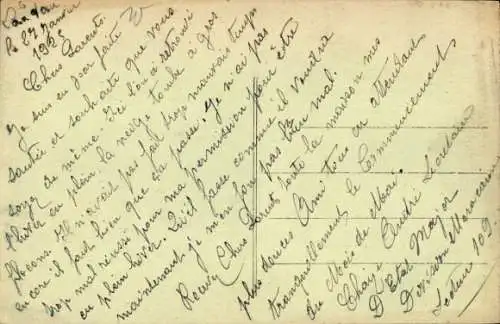 Landau
le 27 Janvier
1925
Chers Parents
Je suis en
santée et souhaite que vous
soyez de même. Ici l'on a retrouvé
l'hiver en plein, la neige tombe à gros
flocons. Il n'avait pas fait trop mauvais temps
encore il faut bien que sa passe. Je n'ai pas
trop mal réussi pour ma permission pour être
en plein hiver. Qu'il fasse comme il voudra
maintenant je m'en fou pas bien mal.
Recevez Chers Parents toute la maison mes
plus douces Amitiés en attendant
tranquillement le Commencement
du Mois de Mai.
André Soldat
D'Etat Major
Division Marocaine
Secteur 109.